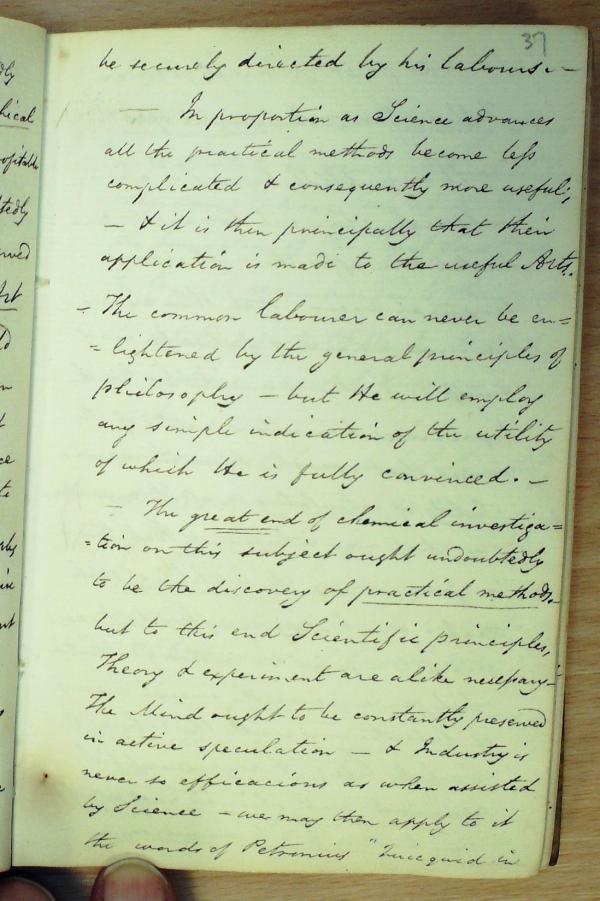 37
be securely directed by his labours. —
— In proportion as Science advances
all the practical methods become less
complicated & consequently more useful;
— & it is then principally that their
application is made to the useful Arts.
- The common labourer can never be en=
= lightened by the general principles of
philosophy — but He will employ
any simple indication of the utility
of which He is fully convinced. —
— The great end of chemical investiga=
=tion on this subject ought undoubtedly
to be the discovery of practical methods.
but to this end Scientific principles,
Theory & experiment are alike necessary-
The Mind ought to be constantly preserved
in active speculation — & Industry is
never so efficacious as when assisted
by Science - we may then apply to it
the words of Petronius "Quicquid in
dly
hical
ofitable
tedly
rved
Art